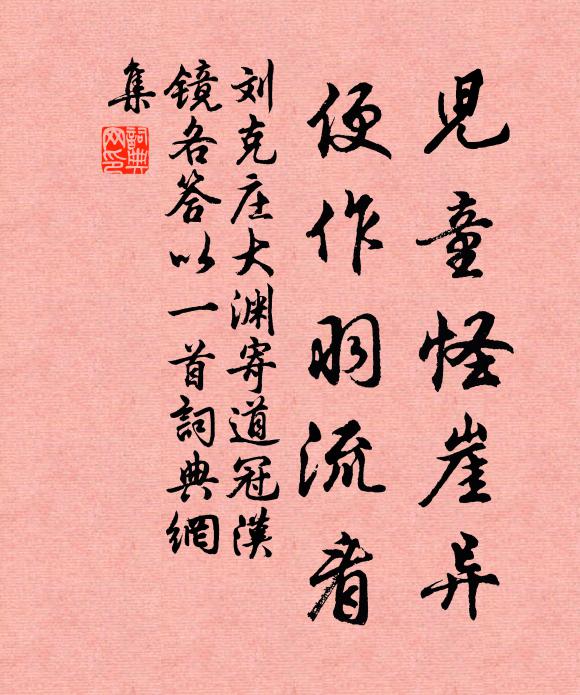 兒童怪崖异
便作羽流看
刘克庄大渊寄道冠漢
镜各答以一首詞典網
集
詞典网印